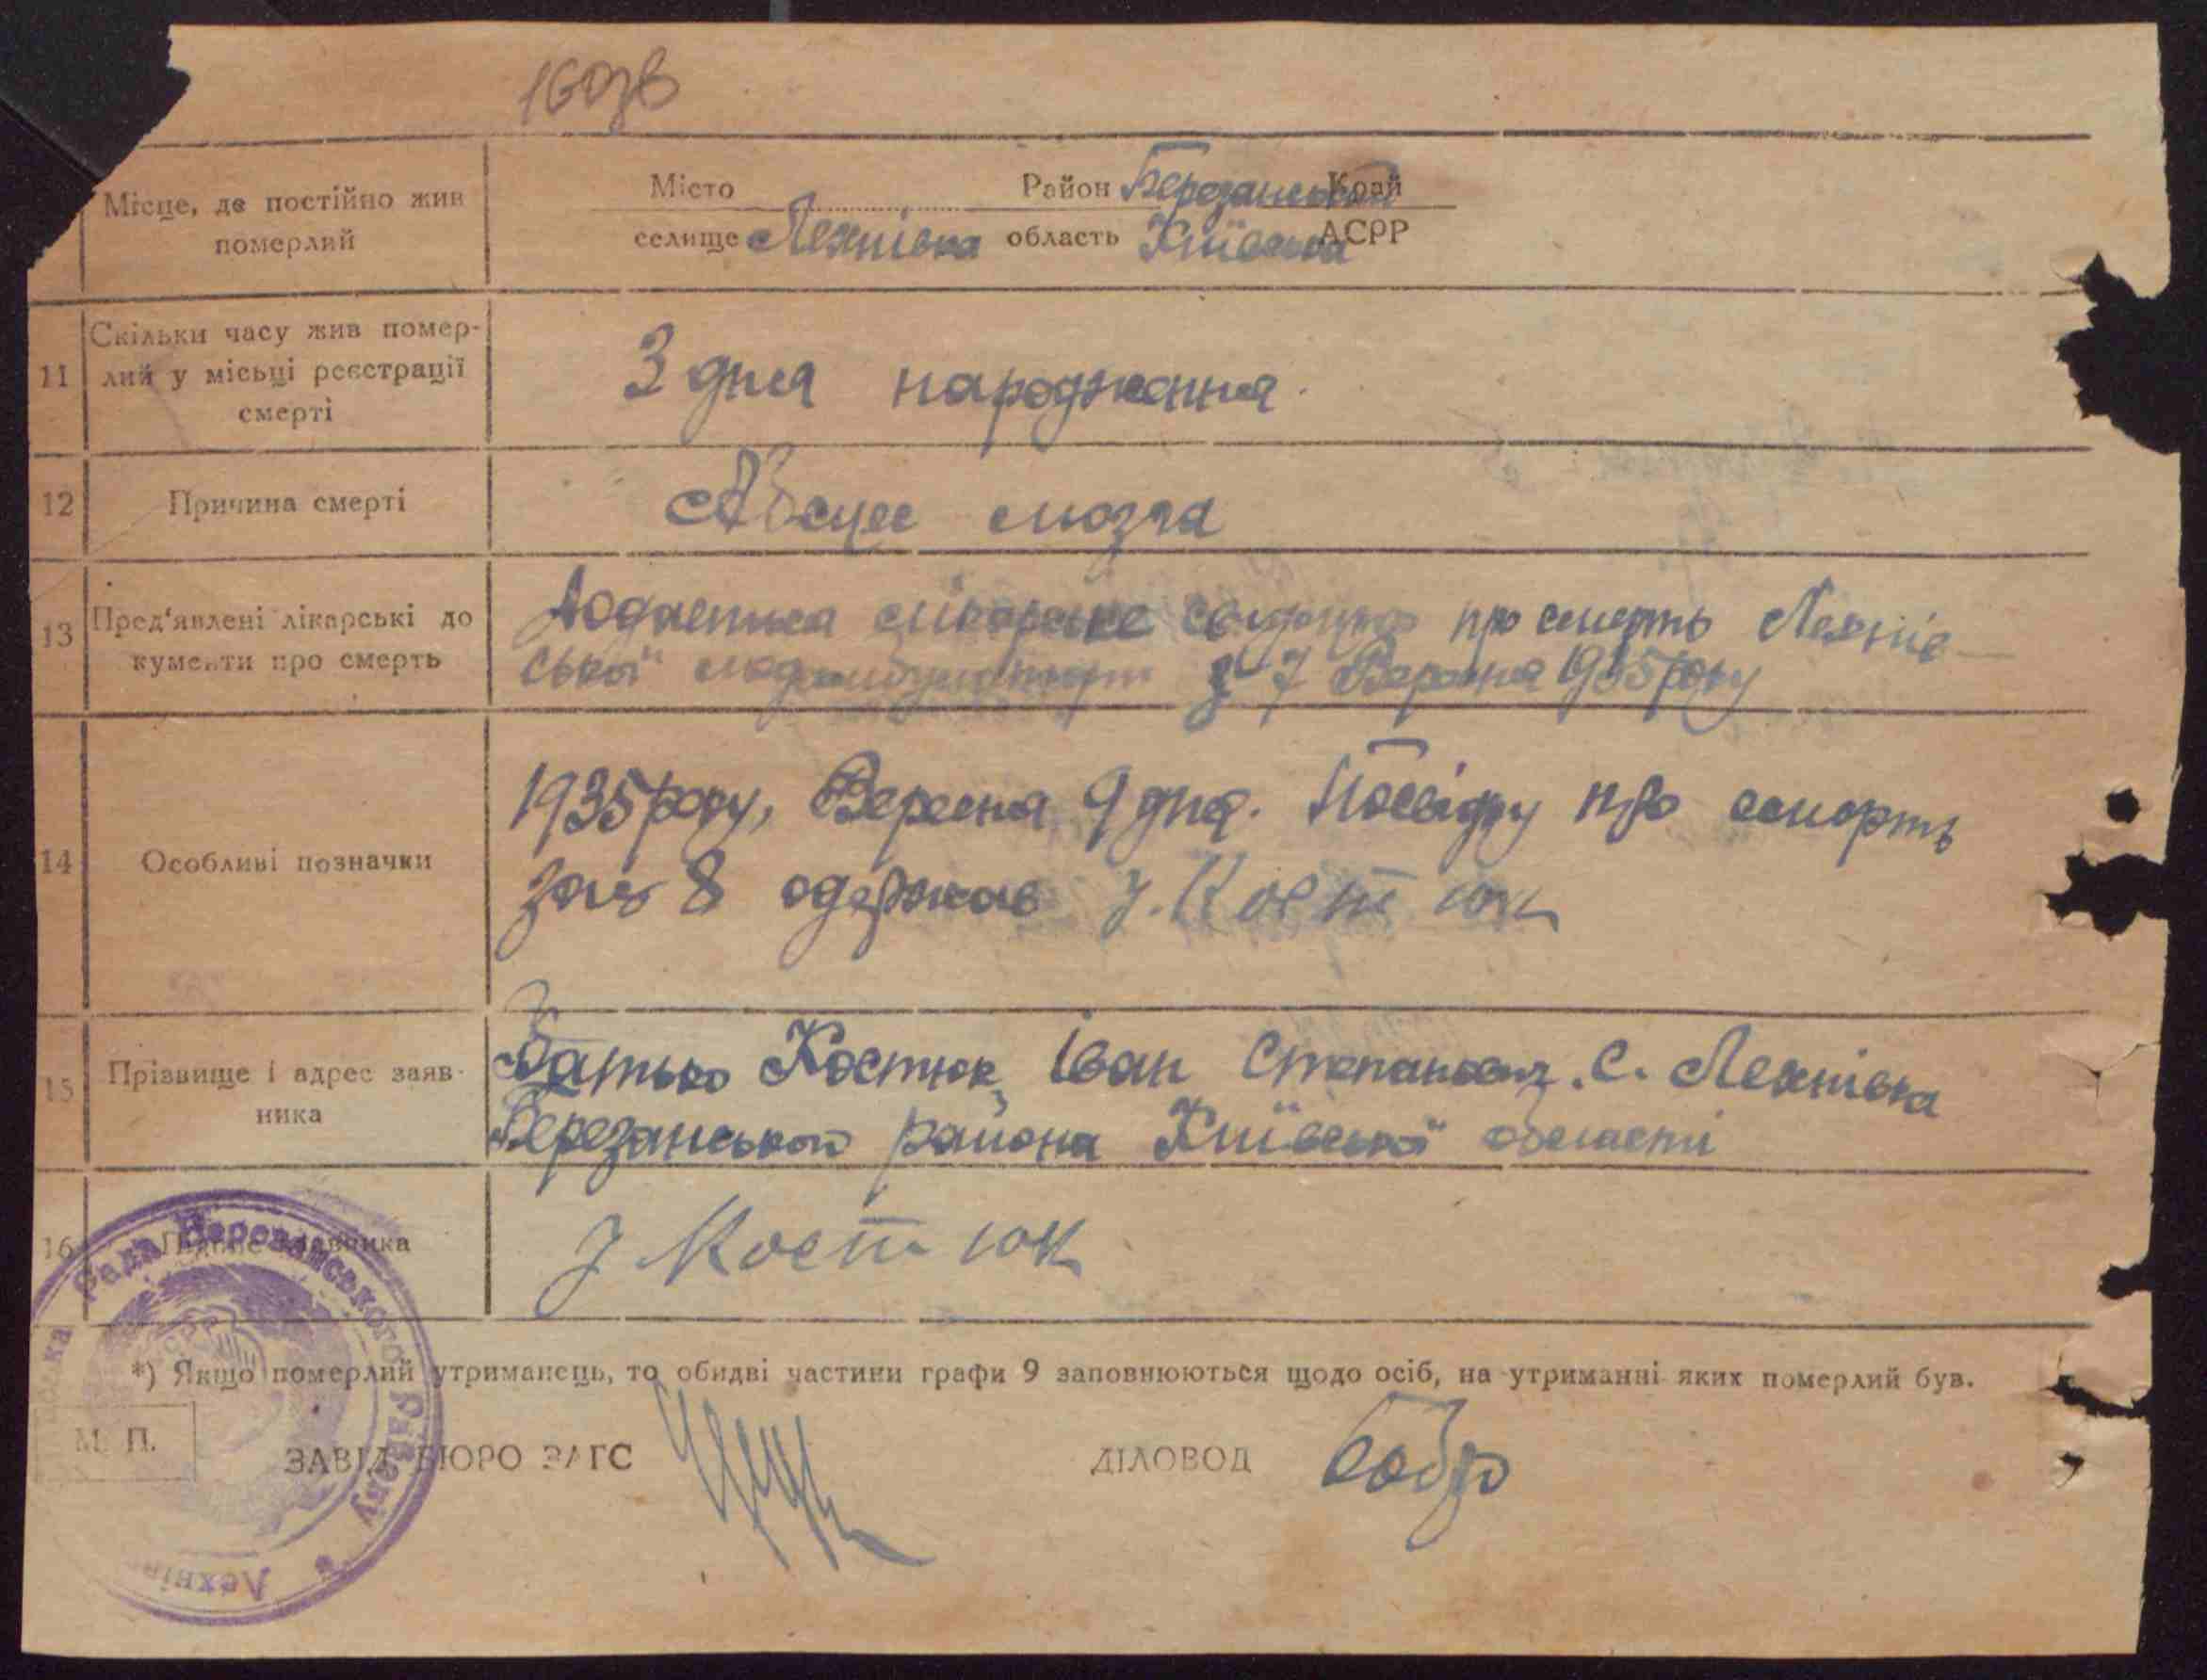 Місце, де постійно жив
померлий
Місто Район Березанський Край
селище Лехнівка область Київська АСРР
11 Скільки часу жив помер-
лий у місьці реєстрації
смерті
З дня народження.
12 Причина смерті
Абсцес мозга
13 Пред'явлені лікарські до
кументи про смерть
Додається лікарське свідоцтво про смерть Лехнів-
ської з 7 Вересня 1935 року
14 Особливі позначки
1935 року, Вересня 9 дня. Посвідку про смерть
за № 8 одержав І. Костюк
15 Прізвище і адрес заяв-
ника
Батько Костюк Іван Степанович. С. Лехнівка
Березанського района Київської області
16 Підпис заявника
І Костюк
*) Якщо померлий утриманець, то обидві частини графи 9 заповнюються щодо осіб, на утриманні яких померлий був.
М. П.
ЗАВІД. БЮРО ЗАГС ДІЛОВОД Бобр
Рада Березанського Району